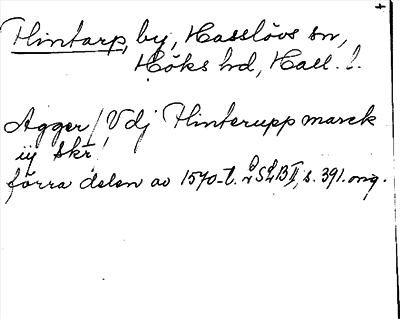 +
Hintarp, by, Hasslövs sn,
Höks hd, Hall. l.
Agger / Vdj Hinterupp marck
iij skr
förra delen av 1570-t. SLB II, s. 391. orig.